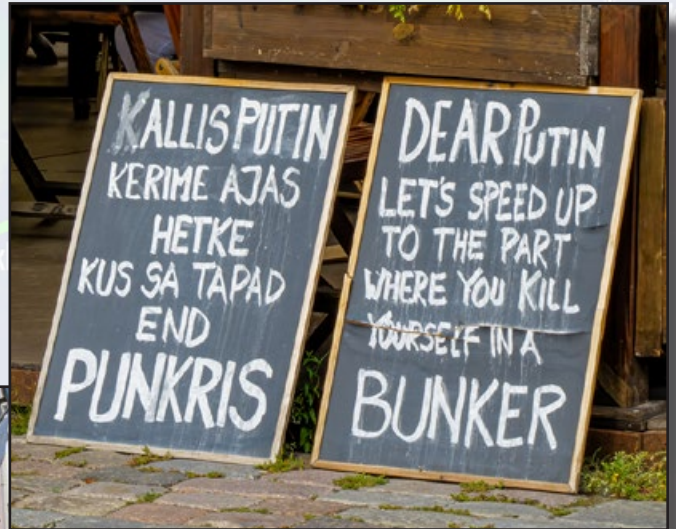 KALLIS PUTIN
KERIME AJAS
HETKE
KUS SA TAPAD
END
PUNKRIS
DEAR PUTIN
LET'S SPEED UP
TO THE PART
WHERE YOU KILL
YOURSELF IN A
BUNKER